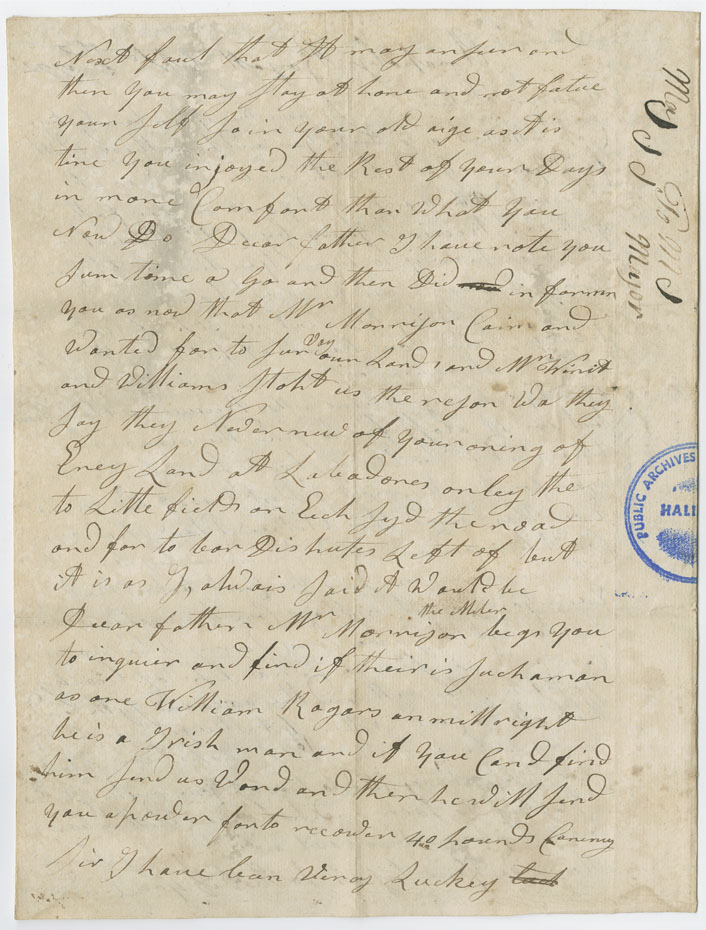 Next faul that It may ansur and
then you may stay at home and not fatue
your self so in your old aige as it is
time you injoyed the Rest of your Days
in more Comfort than What you
Now Do Decor father I have rote you
sum time a Go and then Did in formn
you as now that Mr Morrison Caim and
Wanted for to survay our Land and Mr
and Williams stoht us the reson Wa they
say they Never new of your oning of
Eney Land at Labadores onley the
to Little fields on Each syd the road
and for to bar Disputes Left of but
it is as I, alwais said it Would be
Decor father Mr Morrison the Miler begs you
to inquier and find if their is such a man
as one William Rogars an millright
he is a Irish man and if you Cand find
him send us Word and then he Will send
you a power for to recover 40 pounds Careney
Sir I have bean Verey Luckey
PUBLIC ARCHIVES
HALI